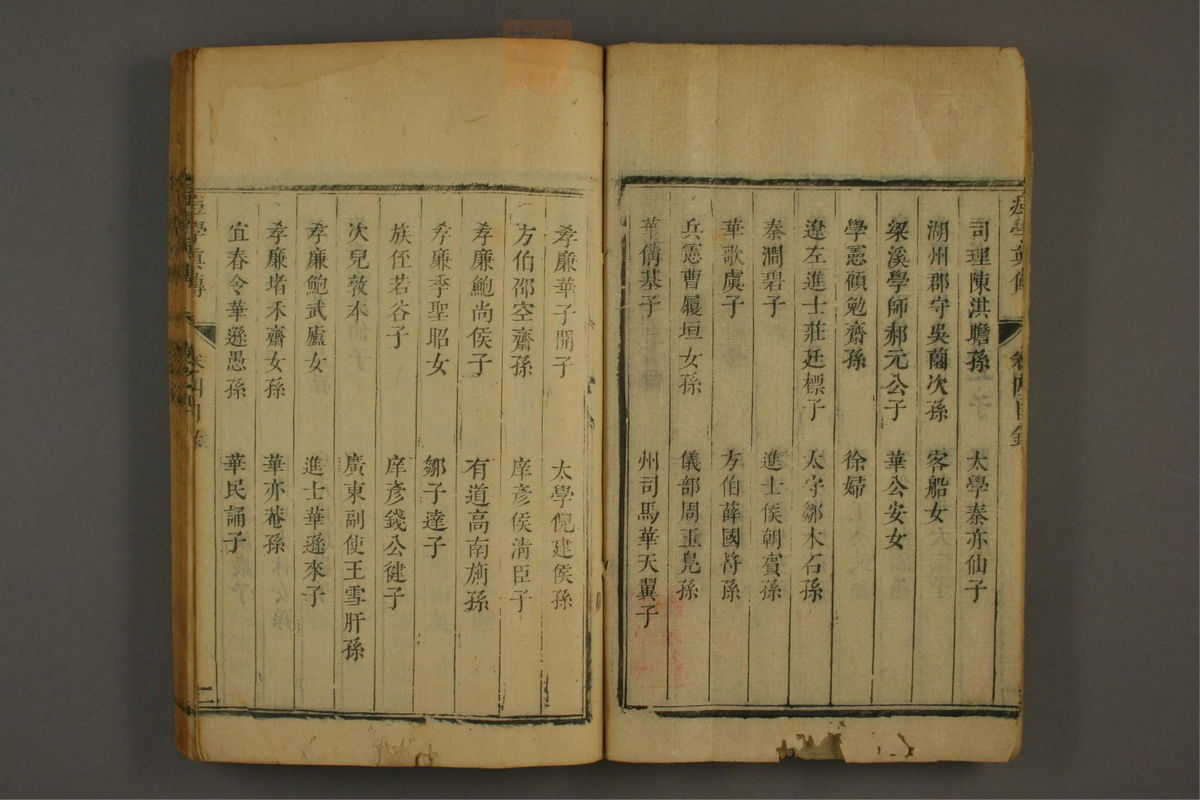 痘學真傳 卷四目錄
司理陳淇瞻孫 太學秦亦仙子
湖州郡守吳薗次孫 客船女
梁溪學師郝元公子 華公安女
學憲顧勉齋孫 徐婦
遼左進士莊廷標子 太守鄒木石孫
秦澗碧子 進士侯朝賓孫
華歌虞子 方伯薛國符孫
兵憲曹履垣女孫 儀部周玉鳧孫
華倩基子 州司馬華天翼子
孝廉華子開子 太學倪建侯孫
方伯邵空齋孫 庠彥侯清臣子
孝廉鮑尚侯子 有道高南旃孫
孝廉季聖昭女 鄒子達子
族侄若谷子 庠彥錢公健子
次兒敦本 廣東副使王雪肝孫
孝廉鮑武廬女 進士華遜來子
孝廉堵禾齋女孫 華亦菴孫
宜春令華遜愚孫 華民誦子
痘學真傳 卷四目錄 二